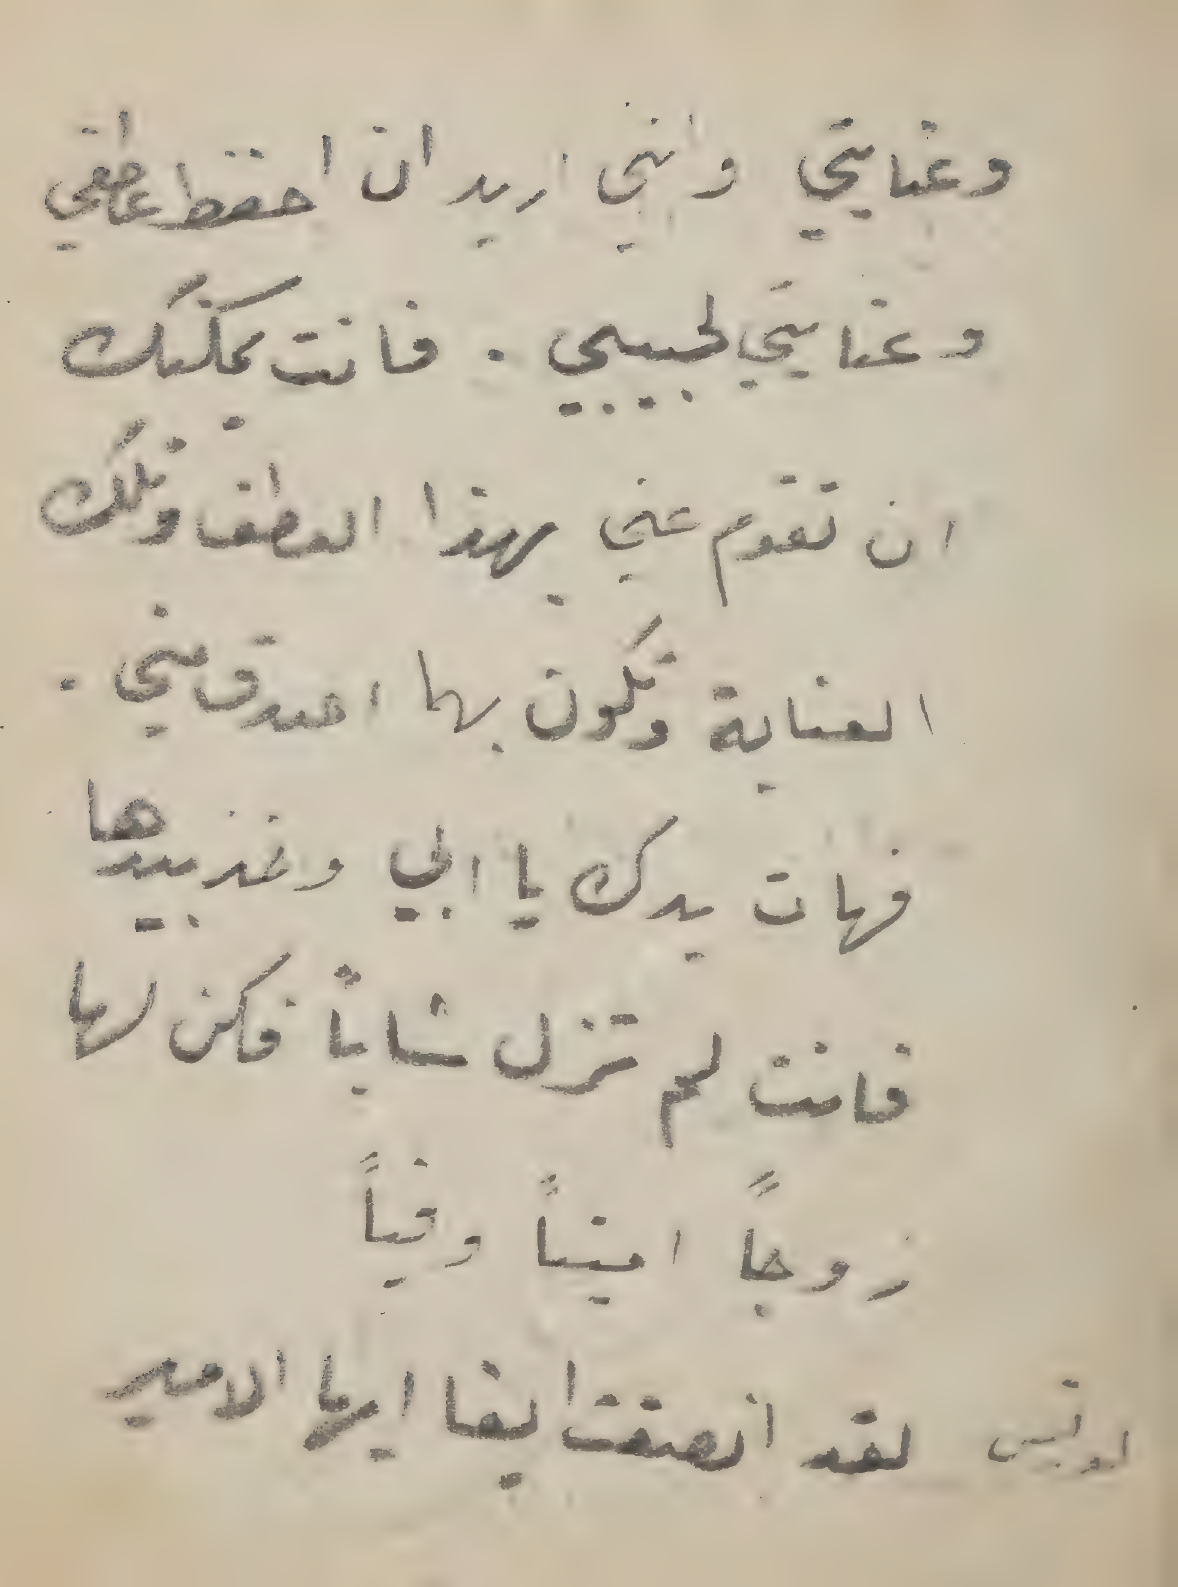 وعنايتي وانني اريد ان احفظ عطفي
وعنايتي لحبيبي . فانت يمكنك
ان تقوم عني بهذا العطف وتلك
العناية وتكون بها اصدق مني .
فهات يدك يا ابي وخذ بيدها
فانت لم تزل شاباً فكن لها
زوجاً اميناً وفياً
لقد انصفت ايضا ايها الامير